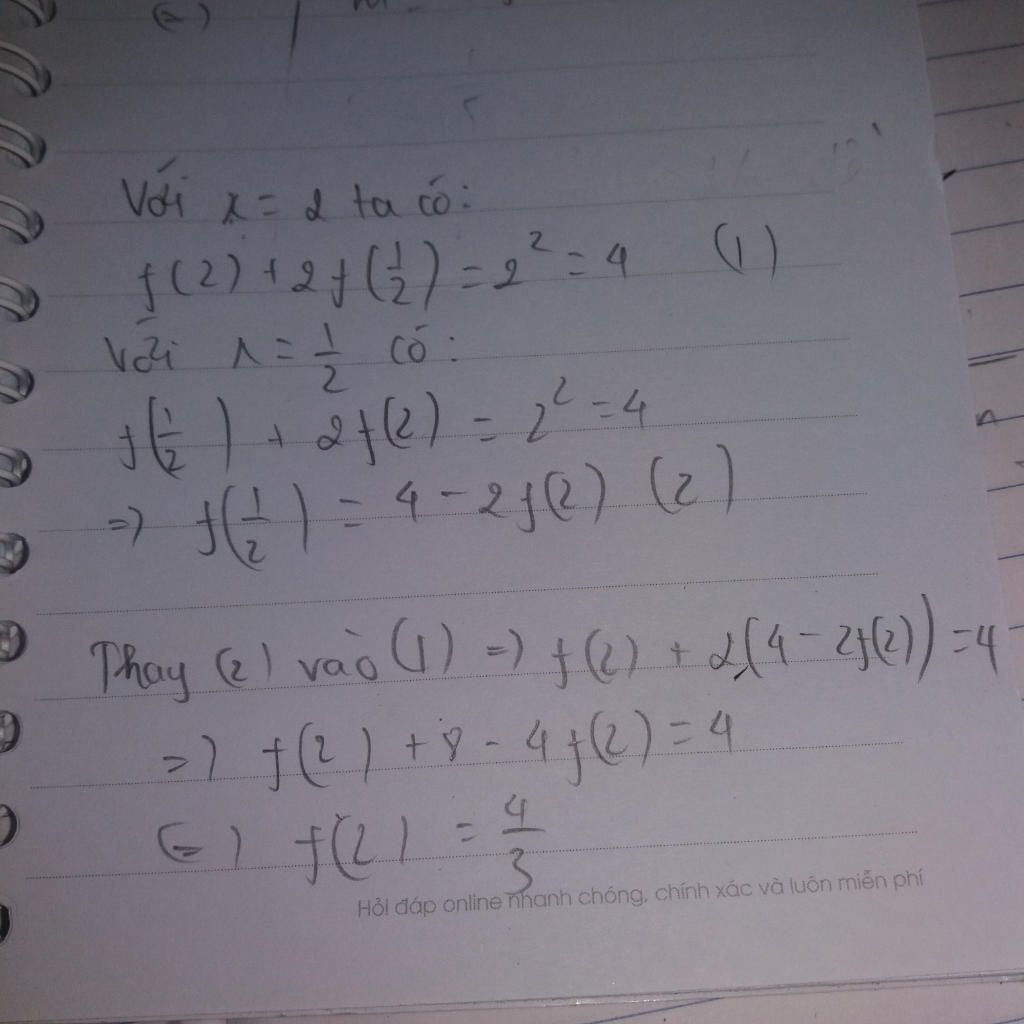 Với x = 2 ta có:
f(2) + 2f(1/2) = 2² = 4 (1)
Với x = 1/2 có:
f(1/2) + 2f(2) = 2² = 4
=> f(1/2) = 4 - 2f(2) (2)
Thay (2) vào (1) => f(2) + 2(4 - 2f(2)) = 4
=> f(2) + 8 - 4f(2) = 4
(=) f(2) = 4/3
Hỏi đáp online nhanh chóng, chính xác và luôn miễn phí